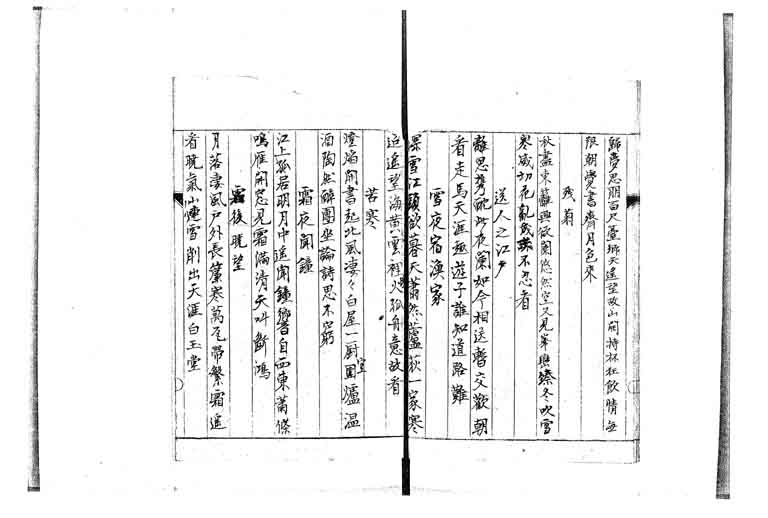 歸賞思朋百尺臺鄉天遙望故山開持杯狂飲情無
限朝覺書齋月色來
残菊
秋盡東籬興欲闌悠然空又見峯巒冬吹雪
寒威切花亂残不忍看
送人之江
離思携酕此夜闌如今相送暫交歡朝
看走馬天涯趣遊子誰知道路難
雪夜宿漁家
深雪江頭欲暮天蕭然蘆荻一家寒
迢遙望海雲裡火孤舟意故看
苦寒
燈焰開書起北風凄々白屋一厨圍爐温
酒陶然醉團坐論詩思不窮
霜夜聞鐘
江上孤居明月中遙聞鐘響自西東蕭條
鳴雁開窓見霜滿清天叫斷鴻
霜後暁望
月落凄風戶外長簾寒萬瓦帶繁霜遙
看暁氣山雪削出天涯白玉堂